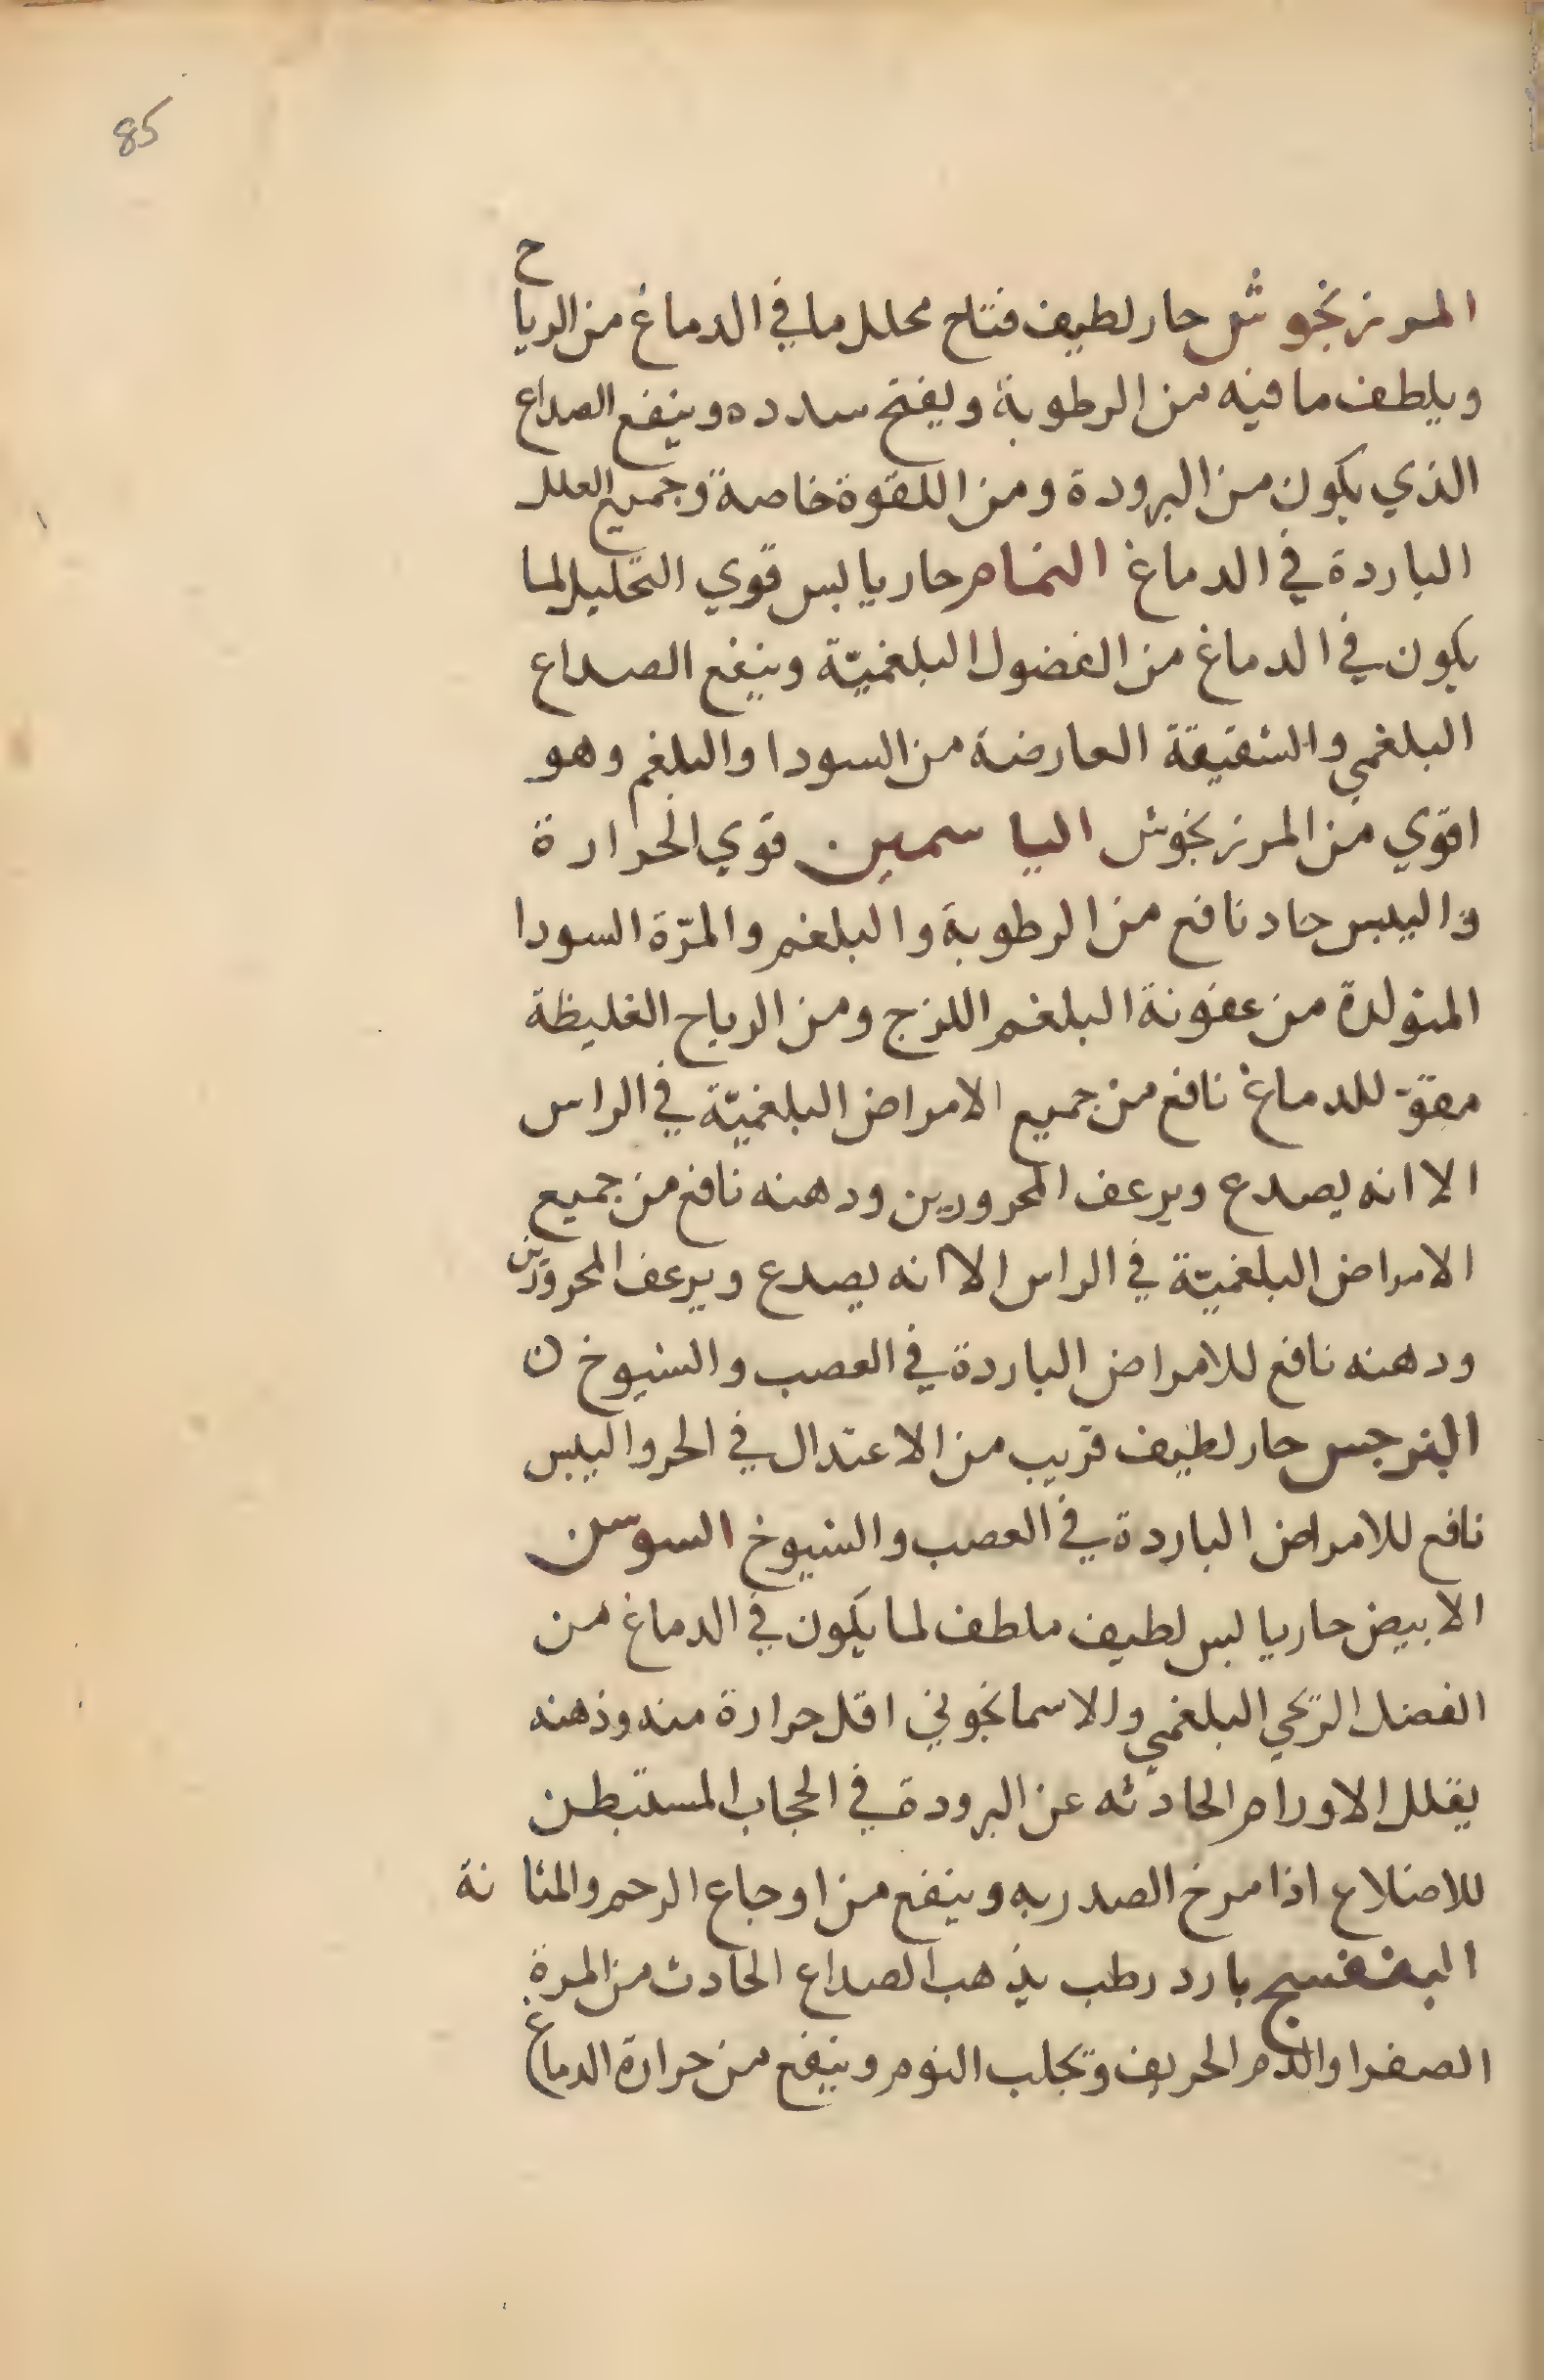 85
المرزنجوش حار لطيف فتاح محلل ما في الدماغ من الرياح
ويلطف ما فيه من الرطوبة ويفتح سدده وينفع الصداع
الذي يكون من البرودة ومن اللقوة خاصة وجميع العلل
الباردة في الدماغ النمام حار يابس قوي التحليل لما
يكون في الدماغ من الفضول البلغميّة وينفع الصداع
البلغمي والشقيقة العارضة من السودا والبلغم وهو
اقوي من المرزنجوش الياسمين قوي الحرارة
واليبس حاد نافع من الرطوبة والبلغم والمرّة السودا
المتولدة من عفونة البلغم اللزج ومن الرياح الغليظة
مقوّ للدماغ نافع من جميع الامراض البلغميّة في الراس
الا انه يصدع ويرعف المحرورين ودهنه نافع من جميع
الامراض البلغميّة في الراس الا انه يصدع ويرعف المحرورين
ودهنه نافع للامراض الباردة في العصب والشيوخ ن
النرجس حار لطيف قريب من الاعتدال في الحر واليبس
نافع للامراض الباردة في العصب والشيوخ السوسن
الابيض حار يابس لطيف ملطف لما يكون في الدماغ من
الفضل الريحي البلغمي والاسمانجوني اقل حرارة منه وذهنه
يقلل الاورام الحادثه عن البرودة في الحجاب المستبطن
للاضلاع اذا مرخ الصدر به وينفع من اوجاع الرحم والمثانة
البنفسج بارد رطب يذهب الصداع الحادث من المرة
الصفرا والدم الحريف وتجلب النوم وينفع من حرارة الدماغ